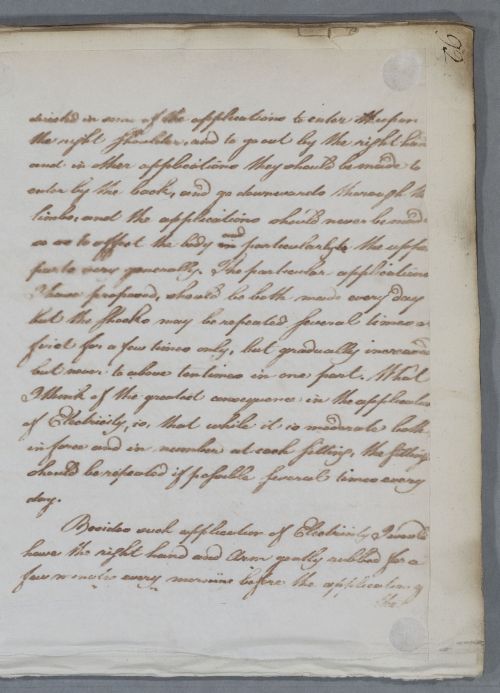 92
directed in some of the applications to enter upon
the right shoulder, and to go out by the right han
and in other applications they should be made to
enter by the back, and go downwards thorough th
limbs, and the applications should never be made
so as to affect the body and in particularly the
parts very generally. The particular applications
I have proposed, should be both made every day
but the shocks may be repeated several times
first for a few times only, but gradually increased
but never to above ten times in one part. What
I think of the greatest consequence in the application
of Electricity, is, that while it is moderate both
in force and in number at each sitting, the sitting
should be repeated if possible several times every
day.
Besides such application of Electricity I would
have the right hand and Arm gently rubbed for a
few minutes every morning before the application of
the